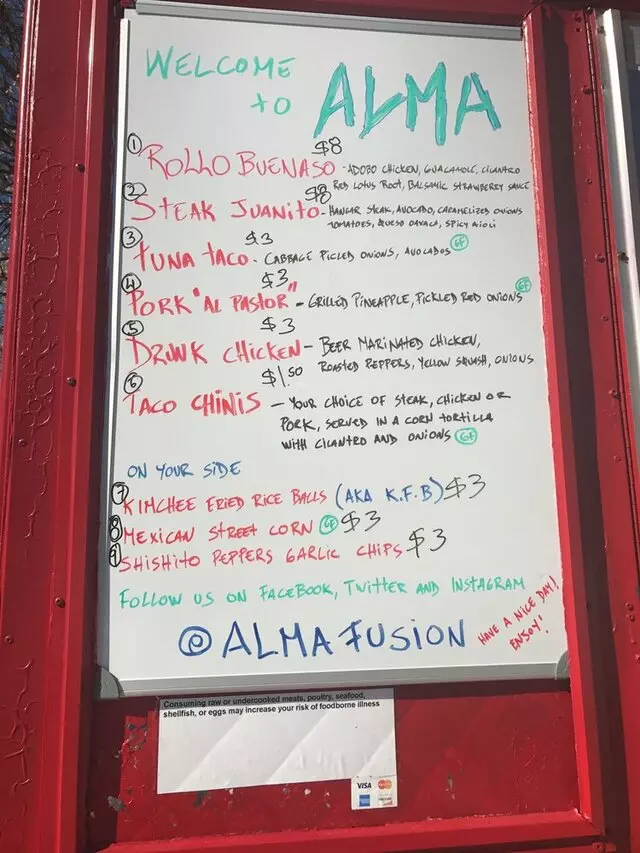 WELCOME
TO ALMA
① ROLLO BUENASO $8 - ADOBO CHICKEN, GUACAMOLE, CILANTRO
RED LOTUS ROOT, BALSAMIC STRAWBERRY SAUCE
② STEAK JUANITO $8 - HANGAR STEAK, AVOCADO, CARAMELIZED ONIONS
TOMATOES, QUESO OAXACA, SPICY AIOLI
③ TUNA TACO $3 - CABBAGE PICLED ONIONS, AVOCADOS GF
④ PORK "AL PASTOR" $3 - GRILLED PINEAPPLE, PICKLED RED ONIONS GF
⑤ DRUNK CHICKEN $3 - BEER MARINATED CHICKEN,
ROASTED PEPPERS, YELLOW SQUASH, ONIONS
⑥ TACO CHINIS $1.50 - YOUR CHOICE OF STEAK, CHICKEN OR
PORK, SERVED IN A CORN TORTILLA
WITH CILANTRO AND ONIONS GF
ON YOUR SIDE
⑦ KIMCHEE FRIED RICE BALLS (AKA K.F.B) $3
⑧ MEXICAN STREET CORN GF $3
⑨ SHISHITO PEPPERS GARLIC CHIPS $3
FOLLOW US ON FACEBOOK, TWITTER AND INSTAGRAM
@ALMAFUSION
HAVE A NICE DAY!
ENJOY!
Consuming raw or undercooked meats, poultry, seafood,
shellfish, or eggs may increase your risk of foodborne illness
VISA